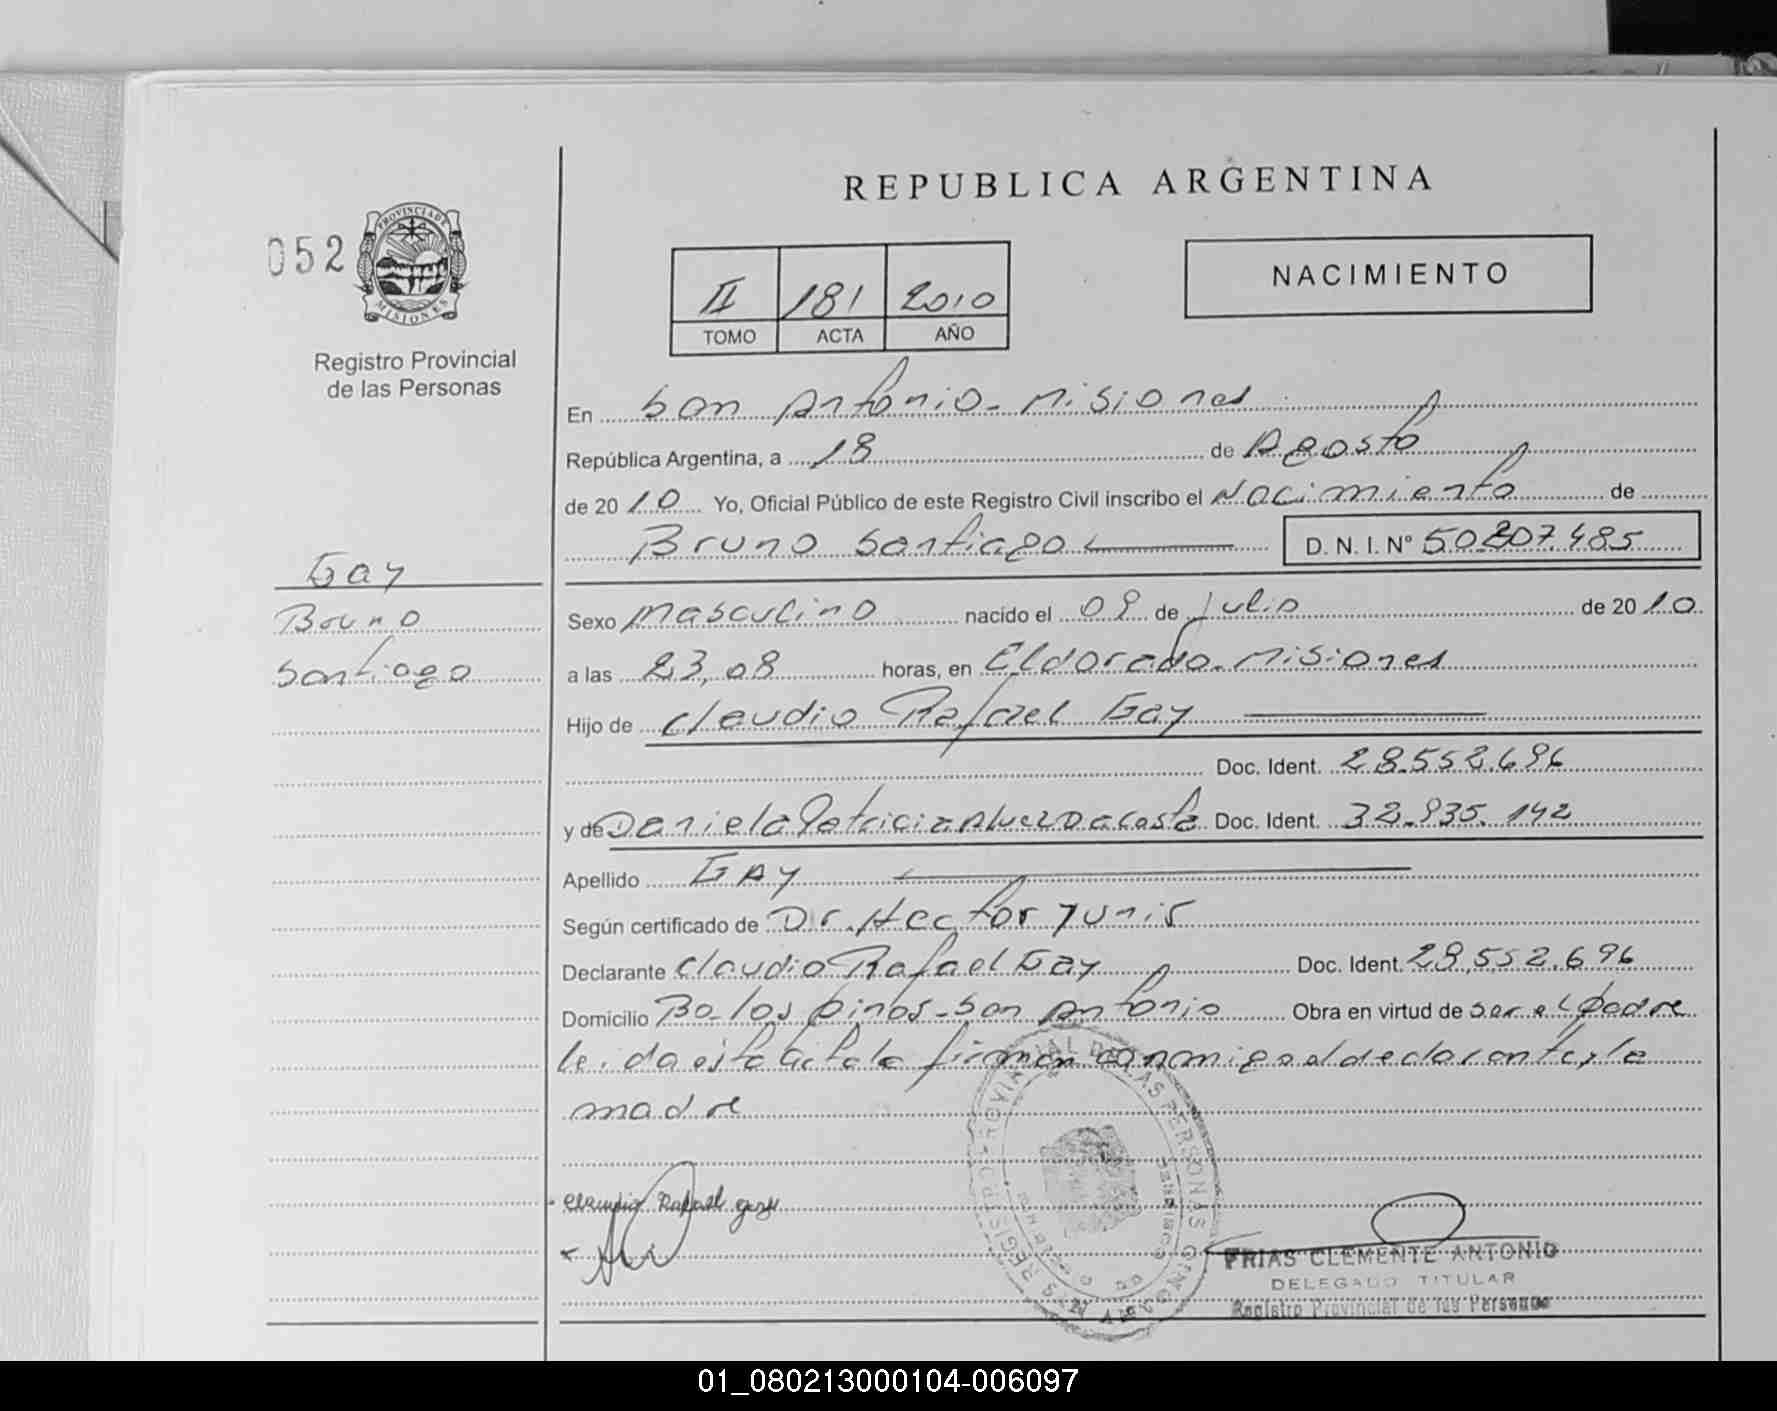 REPUBLICA ARGENTINA
052
PROVINCIA DE MISIONES
Registro Provincial
de las Personas
II 181 2010
TOMO ACTA AÑO
NACIMIENTO
En San Antonio - Misiones
República Argentina, a 18 de Agosto
de 2010 Yo, Oficial Público de este Registro Civil inscribo el Nacimiento de
Bruno Santiago D. N. I. Nº 50.207.485
Gay
Bruno
Santiago
Sexo Masculino nacido el 09 de Julio de 2010
a las 23,08 horas, en Eldorado - Misiones
Hijo de Claudio Rafael Gay
Doc. Ident. 28.552.696
y de Daniela Patricia Da Costa Doc. Ident. 32.935.142
Apellido Gay
Según certificado de Dr. Hector Yunis
Declarante Claudio Rafael Gay Doc. Ident. 28.552.696
Domicilio Bo- los pinos - San Antonio Obra en virtud de ser el padre
leida esta acta la firman conmigo el declarante y la
madre
Claudio Rafael gay
REGISTRO PROVINCIAL DE LAS PERSONAS
FRIAS CLEMENTE ANTONIO
DELEGADO TITULAR
Registro Provincial de las Personas
01_080213000104-006097